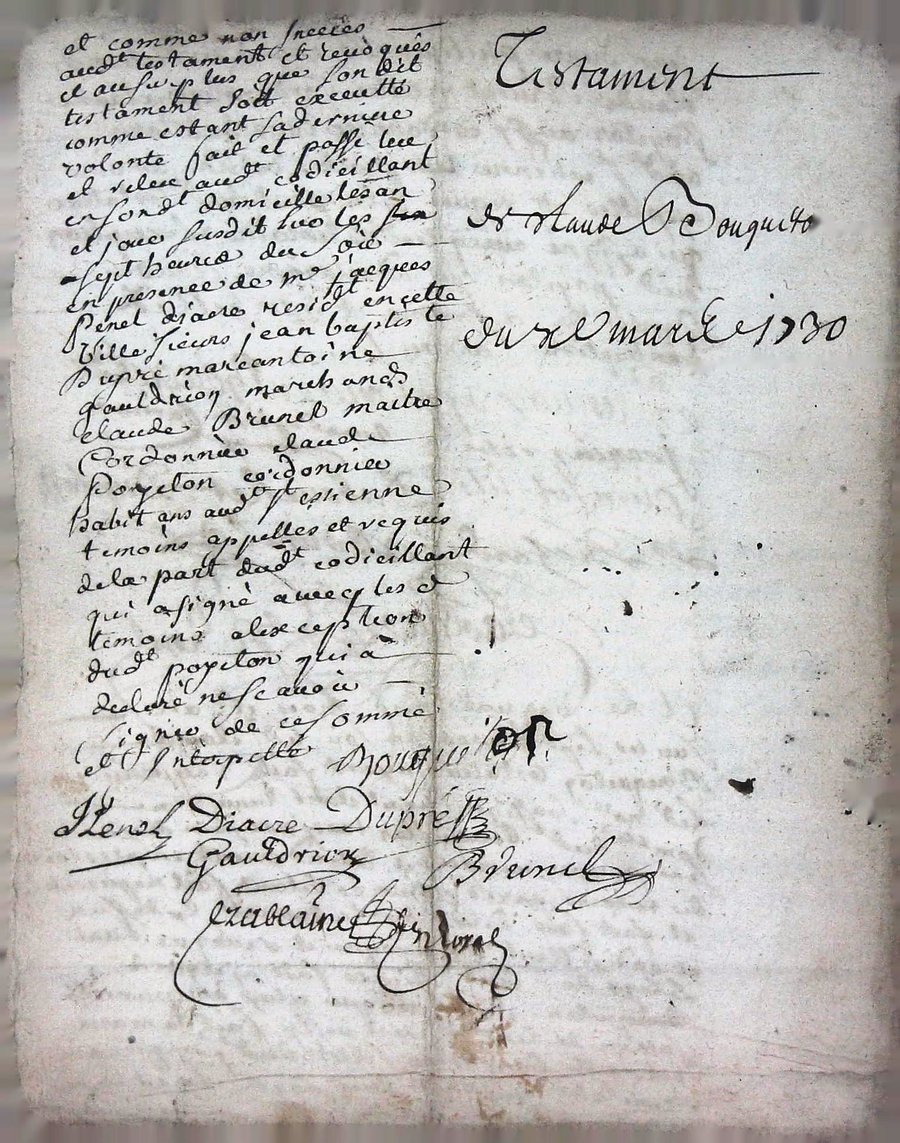 et comme non inceres
aud.t testament et revoqués
et ausu plus que son dit
testament soit executté
comme estant sa derniere
volonté fait et passé leu
et releu aud.t codicillant
en sond.t domicille les an
et jour susdit sur les
sept heures du soir
en presence de m.re jacques
Penel diacre resid.t en cette
ville sieurs jean baptiste
Dupré marcantoine
gauldrion marchands
claude Brunel maitre
Cordonnier claude
Popelon cordonnier
habitans aud.t S.t estienne
temoins appellés et requis
de la part dud.t codicillant
qui a signé avec les d
temoins a lexception
dud.t popelon qui a
declaré ne scavoir
signer de ce sommé
et Interpellé Bouqueton
Penel Diacre Dupré
Gauldrion Brunel
Testament
de Claude Bouqueto
du mars 1730